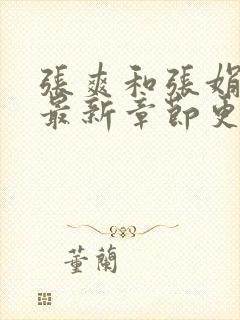 張爽和張娟
最新章節更
董蘭